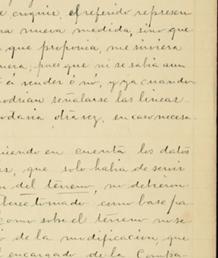 enquie, el referido represen
na nueva medida, sino que
que proponia, me sirviera
nera, pues que ni se sabia aun
á vender ó nó, y ya cuando
podrian señalarse las lineas
odaria otra vez, en caso necesa
niendo en cuenta los datos
que solo habia de servir
en del terreno, no debieron
tomado como base pa
como sobre el terreno no se
o de la modificacion que
encargado de la Compa-